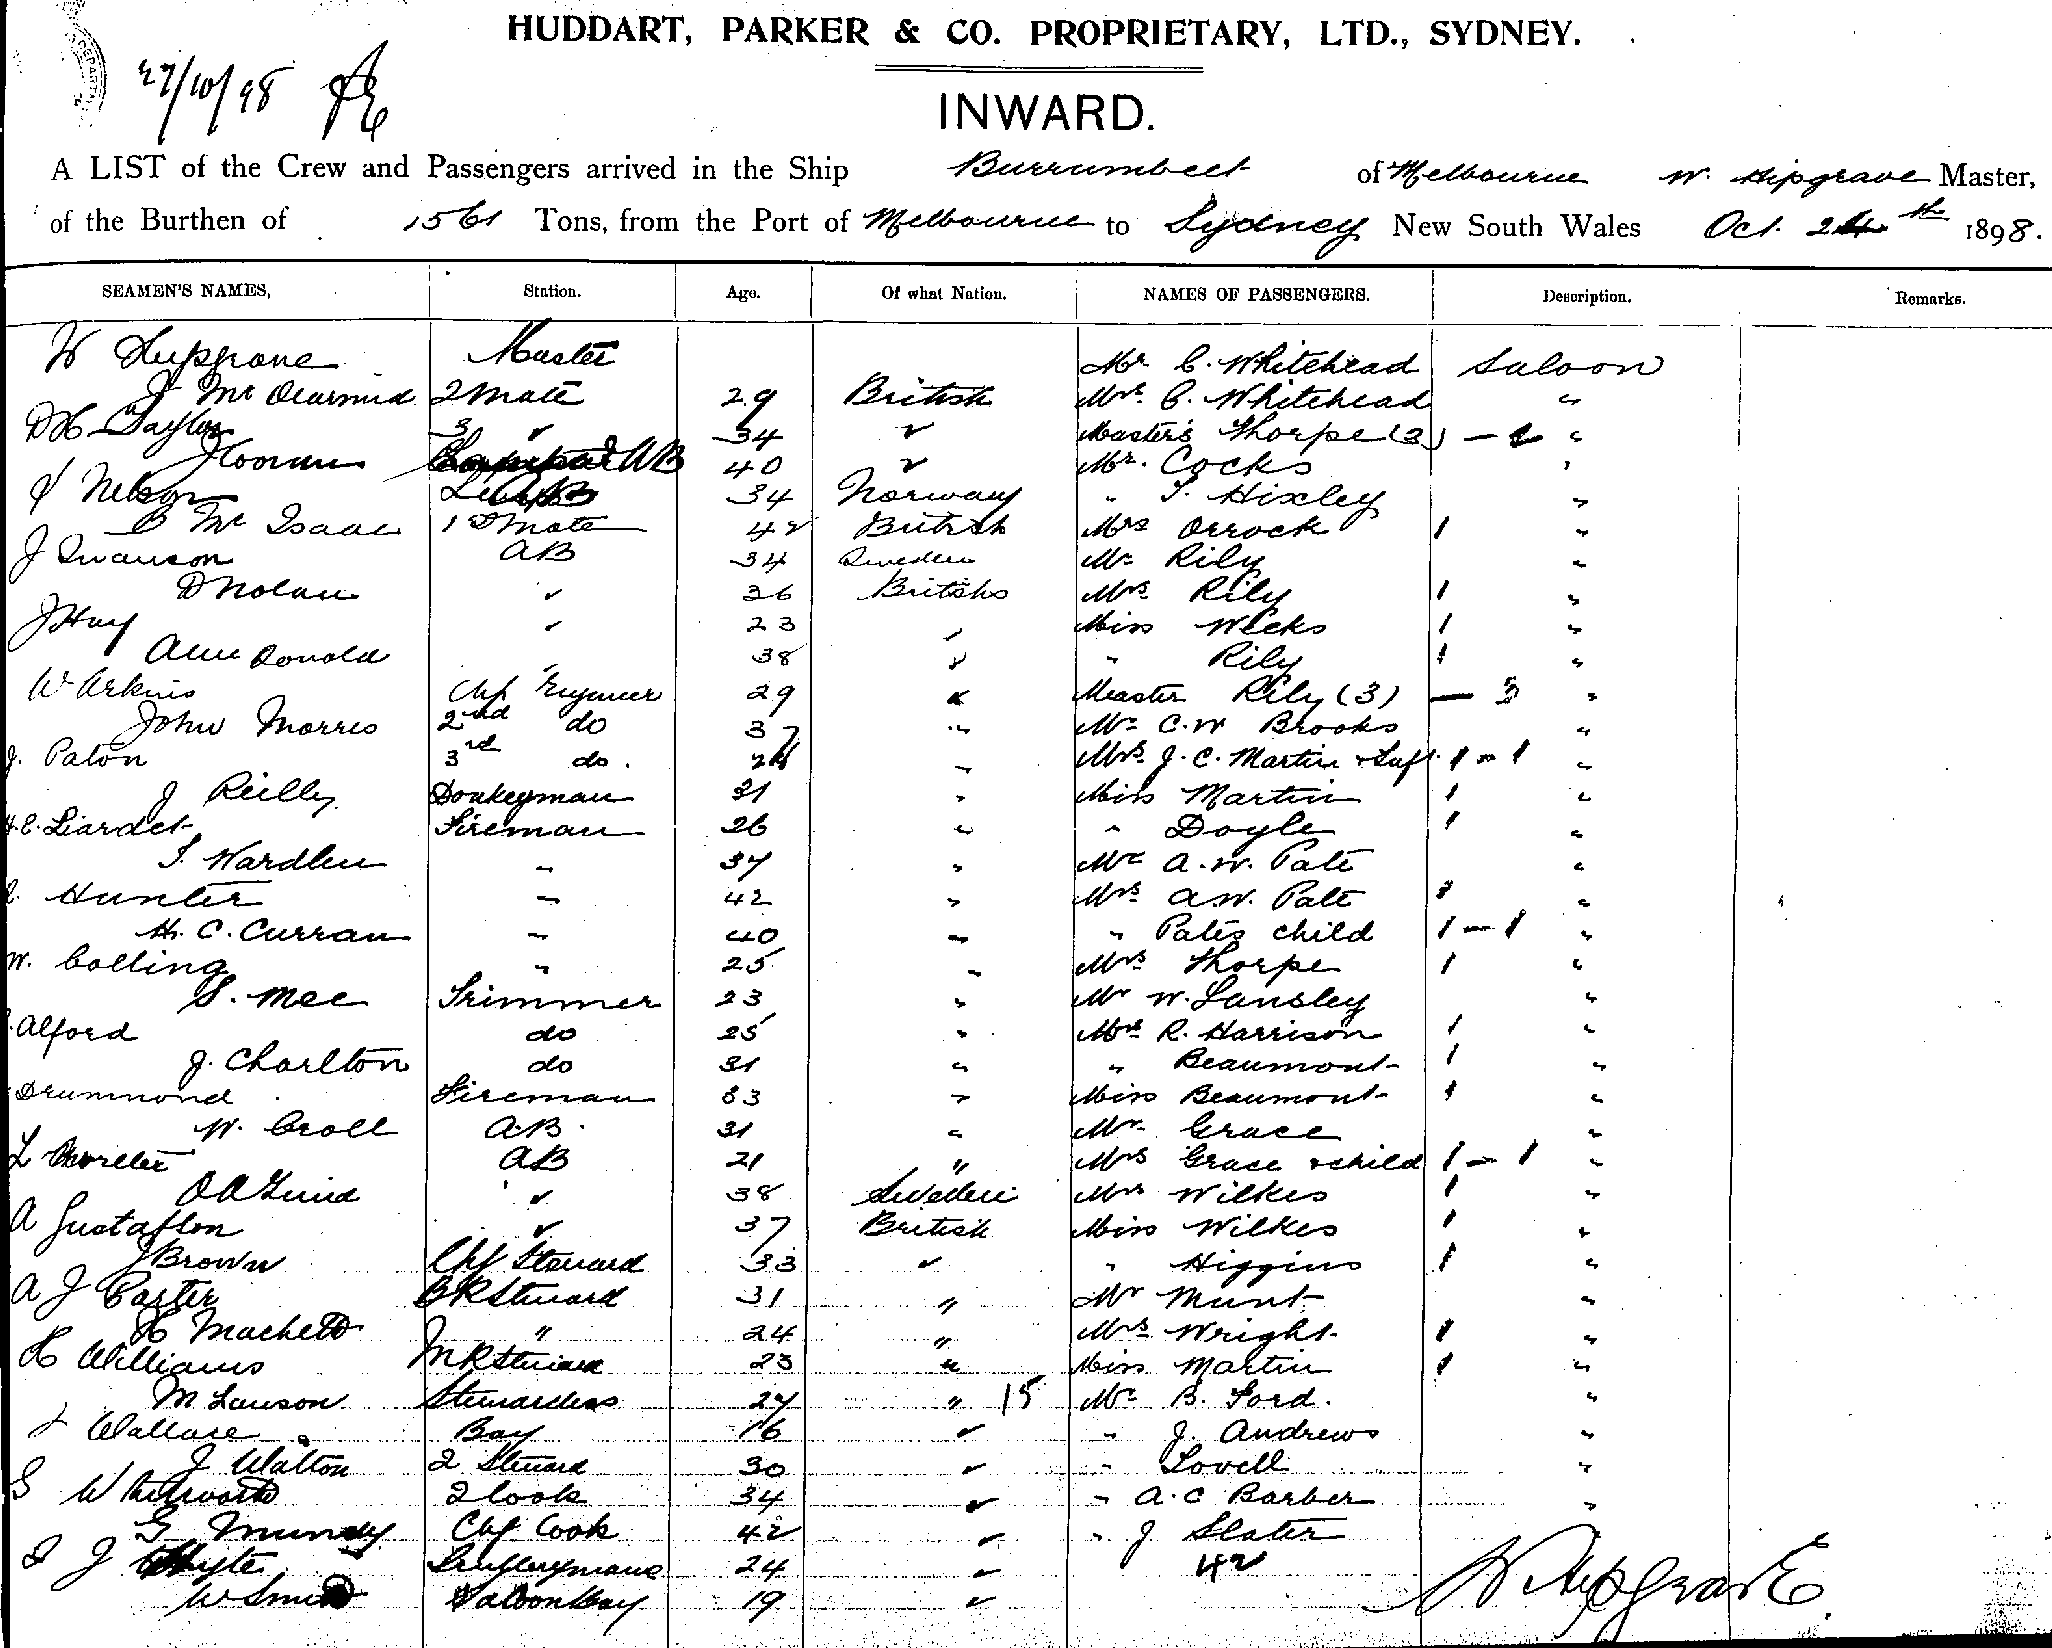 HUDDART, PARKER & CO. PROPRIETARY, LTD., SYDNEY.
27/10/98
INWARD.
A LIST of the Crew and Passengers arrived in the Ship Burrumbeet of Melbourne W. Hipgrave Master,
of the Burthen of 1561 Tons, from the Port of Melbourne to Sydney New South Wales Oct. 24th 1898.
SEAMEN'S NAMES, Station. Age. Of what Nation. NAMES OF PASSENGERS. Description. Remarks.
W Hipgrave Master Mr C. Whitehead Saloon
J Mc Diarmid 2 Mate 29 British Mrs. C. Whitehead "
D H Taylor 3 " 34 " Master's Thorpe (2) - 2 "
J Coonan AB 40 " Mr. Cocks "
Nelson 34 Norway " T. Hixley "
C Mc Isaac 1st Mate 42 British Mrs Orrock 1 "
J Swanson AB 34 Sweden Mr Rily "
D Nolan " 26 British Mrs Rily 1 "
J Hay " 23 " Miss Weeks 1 "
A McDonald " 38 " " Rily 1 "
W Arkins Chf Engineer 29 " Master Rily (3) - 3 "
John Morris 2nd do 37 " Mr C. W Brooks "
J. Paton 3rd do. " Mrs. J. C. Martin & Inft. 1 - 1 "
J Reilly Donkeyman 31 " Miss Martin 1 "
H. E. Liardet Fireman 26 " " Doyle 1 "
Wardlen " 34 " Mr A. W. Pate "
Hunter " 42 " Mrs A W. Pate 1 "
H. C. Curran " 40 " " Pates child 1 - 1 "
W. Colling " 25 " Mrs Thorpe 1 "
S. Mee Trimmer 23 " Mr W. Lansley "
Alford do 25 " Mrs R. Harrison 1 "
J. Charlton do 31 " " Beaumont 1 "
Drummond Fireman 33 " Miss Beaumont 1 "
W. Croll A.B. 31 " Mr. Grace "
L AB 21 " Mrs Grace & child 1 - 1 "
" 38 Sweden Mrs Wilkes 1 "
A Gustafson " 37 British Miss Wilkes 1 "
J Brown Chf Steward 33 " " Higgins 1 "
A J Carter B R Steward 31 " Mr Munt "
H Machett " 24 " Mrs Wright 1 "
H Williams M R Steward 23 " Miss Martin 1 "
M Lawson Stewardess 27 " 15 Mr B. Ford. "
Wallace Boy 16 " " J. Andrews "
J Walton 2 Steward 30 " " Lovell "
G Whitworth 2 Cook 34 " " A. C Barber "
G Munday Chf Cook 42 " " J Slater
J Whyte 24 " 42
W Smith Saloon Boy 19 "
W Hipgrave